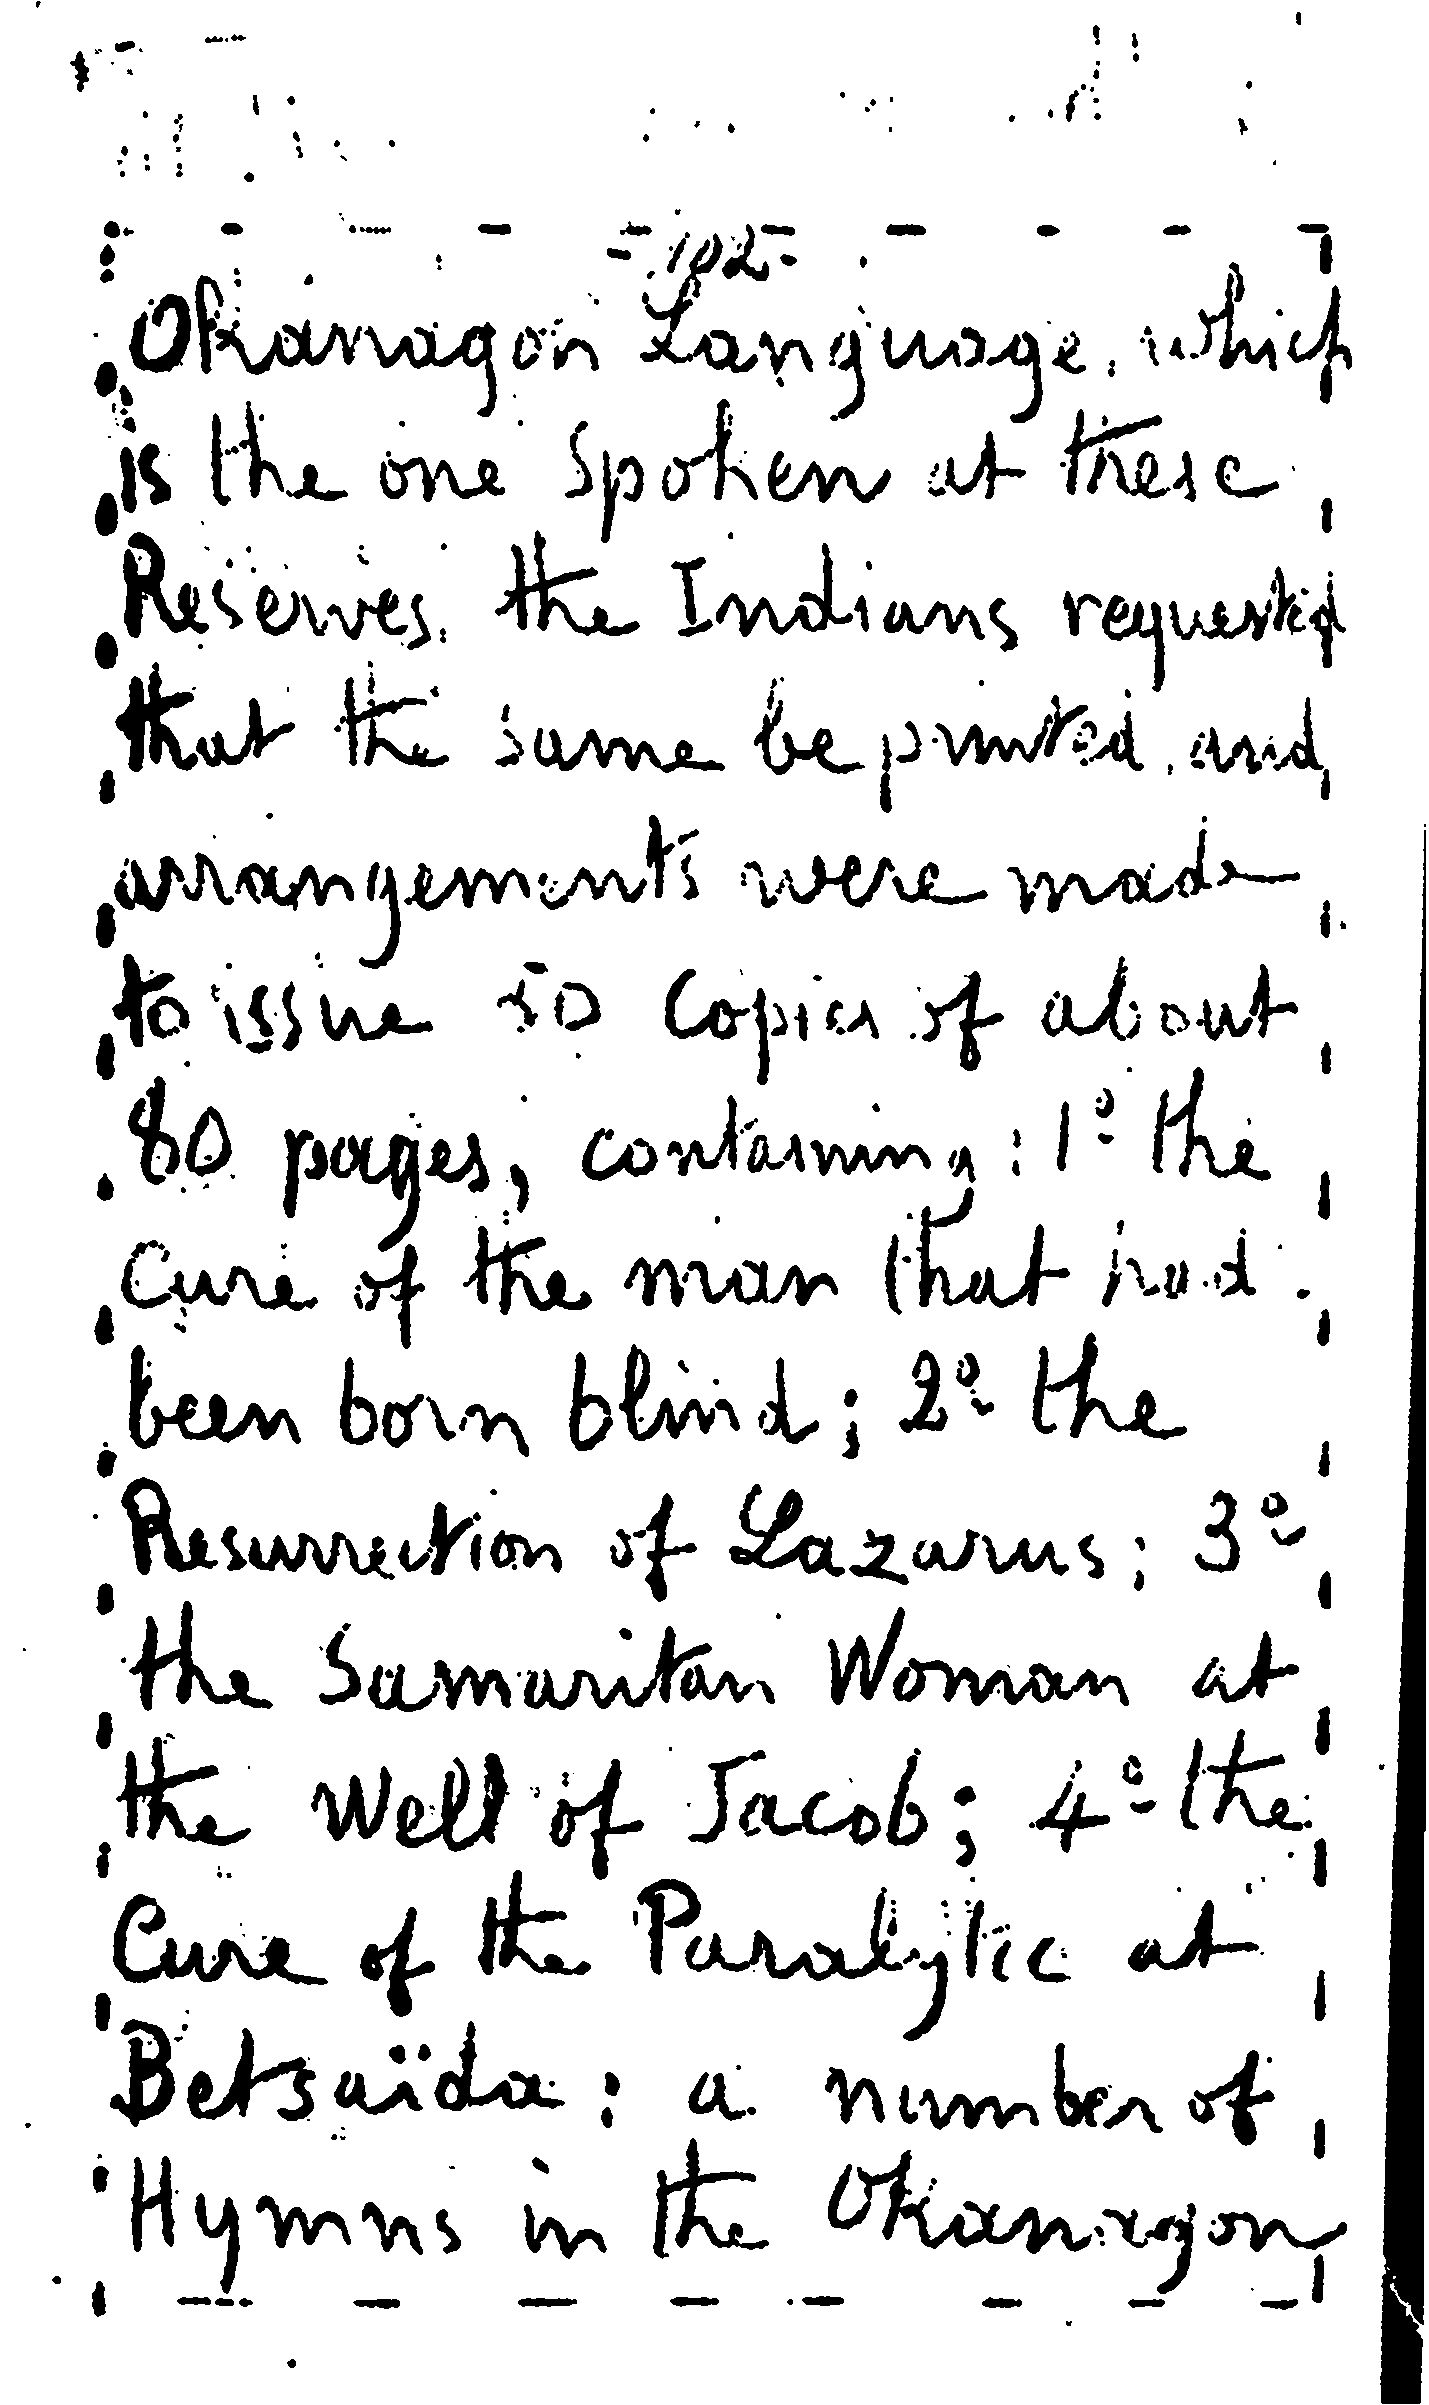 -102-
Okanagon Language, which
is the one spoken at these
Reserves, the Indians requested
that the same be printed, and
arrangements were made
to issue 50 Copies of about
80 pages, containing: 1º the
Cure of the man that had
been born blind; 2º the
Resurrection of Lazarus; 3º
the Samaritan Woman at
the Well of Jacob; 4º the
Cure of the Paralytic at
Betsaïda: a number of
Hymns in the Okanagon